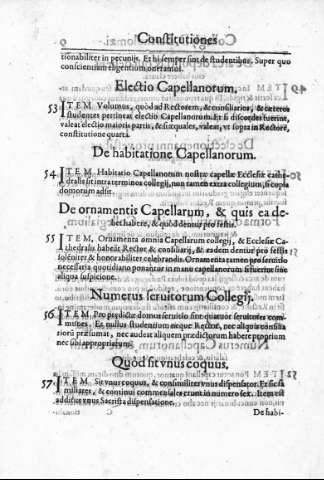 Constitutiones
tionabiliter in pecunijs. Et hi semper sint de studentibus. Super quo
conscientiam eligentium oneramus.
Electio Capellanorum.
53 ITEM Volumus, quòd ad Rectorem, & consiliarios, & cæteros
studentes pertineat electio Capellanorum. Et si discordes fuerint,
valeat electio maioris partis, & si æquales, valeat, vt supra in Rectore,
constitutione quarta.
De habitatione Capellanorum.
54 ITEM. Habitatio Capellanorum nostræ capellæ Ecclesiæ cathe-
dralis sit intra terminos collegij, non tamen extra collegium, sicopia
domorum adsit.
De ornamentis Capellarum, & quis ea de-
bet habere, & quòd dentur pro festis.
55 ITEM, Ornamenta omnia Capellarum collegij, & Ecclesiæ Ca-
thedralis habeat Rector & consiliarij, & eadem dentur pro festis
solẽniter & honorabiliter celebrandis. Ornamenta tamen pro seruitio
necessaria quotidiano ponantur in manu capellanorum securitate sine
aliqua suspicione.
Numerus seruitorum Collegij.
56 ITEM Pro prædicto domus seruitio sint quatuor seruitores com-
munes. Et nullus studentium neque Rector, nec aliquis consilia
riorũ præsumat, nec audeat aliquem prædictorum habere proprium
nec sibi appropriatum.
Quod sit vnus coquus.
57 ITEM Sit vnus coquus, & consimiliter vnus dispensator. Et sic fa
miliares, & continui commensales erunt in numero sex. Item est
additus vnus Sacrista dispensatione.
C
De habi-